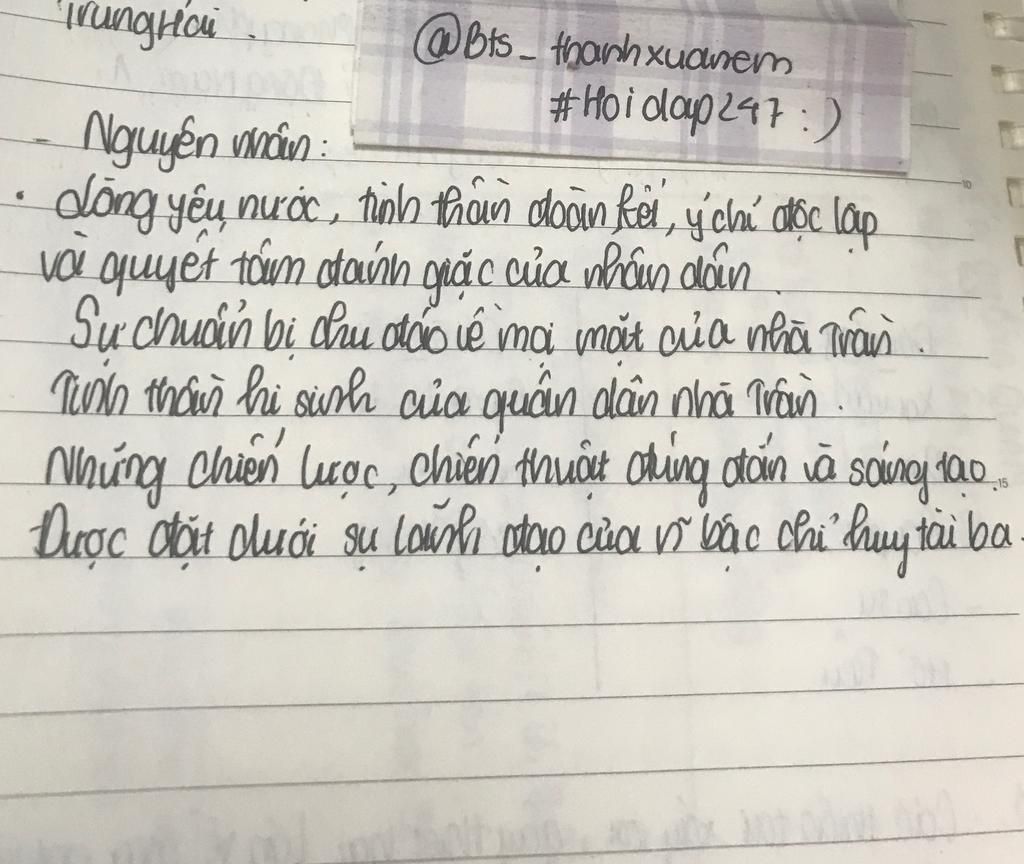 Trung Hải.
@Bts_thanhxuanem
#Hoidap247 :)
- Nguyên nhân:
• dòng yêu nước, tinh thần đoàn kết, ý chí độc lập
và quyết tâm đánh giặc của nhân dân.
Sự chuẩn bị chu đáo về mọi mặt của nhà Trần.
Tinh thần hi sinh của quân dân nhà Trần.
Những chiến lược, chiến thuật đúng đắn và sáng tạo.
Được đặt dưới sự lãnh đạo của vĩ bậc chỉ huy tài ba.